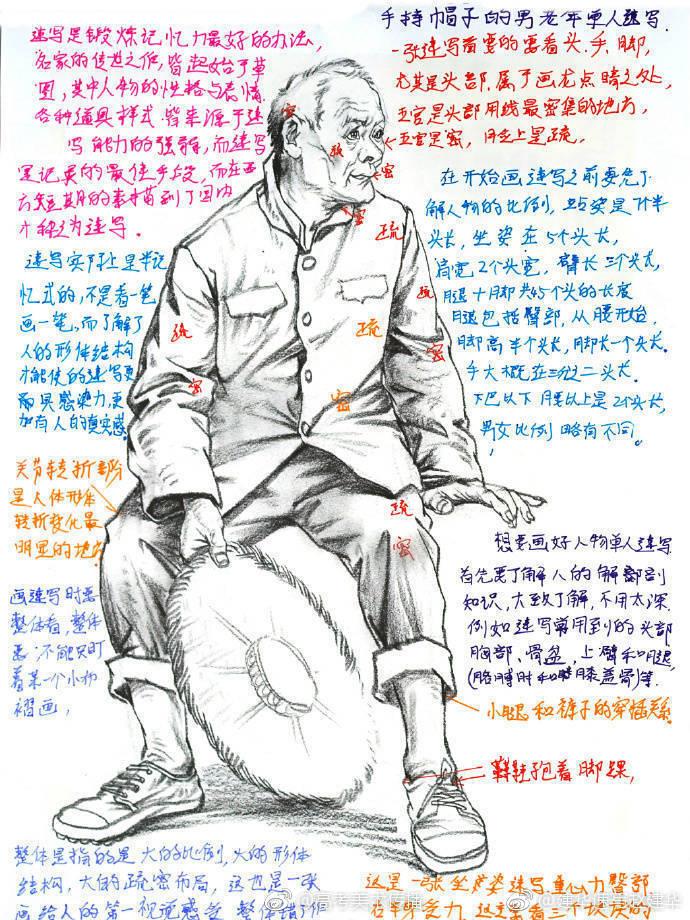 手持帽子的男老年单人速写.
速写是锻炼记忆力最好的办法,
名家的传世之作,皆起始于草
图,其中人物的性格与表情,
各种道具样式皆来源于速
写能力的强弱,而速写
是记录的最佳手段,而在西
方
期的素描到了国内
才称之为速写.
一张速写首要的要看头.手.脚,
尤其是头部.属于画龙点睛之处,
五官是头部用线最密集的地方,
五官是密,
上是疏.
在开始画速写之前要先了
解人物的比例,站姿是7个半
头长,坐姿在5个头长,
肩宽2个头宽,臂长三个头长,
腿十脚共4.5个头的长度
腿包括臀部,从腰开始,
脚高半个头长,脚长一个头长.
手大概在三分之二头长.
下巴以下腰以上是2个头长,
男女比例略有不同。
速写实际上是半记
忆式的,不是看一笔
画一笔,而了解了
人的形体结构
才能使的速写更
而具感染力,更
加有人的真实感.
密
疏
密
密
疏
疏
疏
疏
密
密
密
疏
密
关节转折部分
是人体形体
转折变化最
明显的地方
画速写时要
整体看,整体
画,不能只盯
着某一个小物
褶画,
想要画好人物单人速写
首先要了解人的解部剖
知识,大致了解,不用太深.
例如速写常用到的头部
胸部、骨盆,上臂和腿,
(胳膊肘和膝盖骨)等.
小腿和裤子的穿插关系
鞋
抱着脚踝,
整体是指的是大的比例,大的形体
结构,大的疏密布局,这也是一张
画给人的第一视觉感受
这是一张坐姿速写.重心力臀部.
@高考美术直播